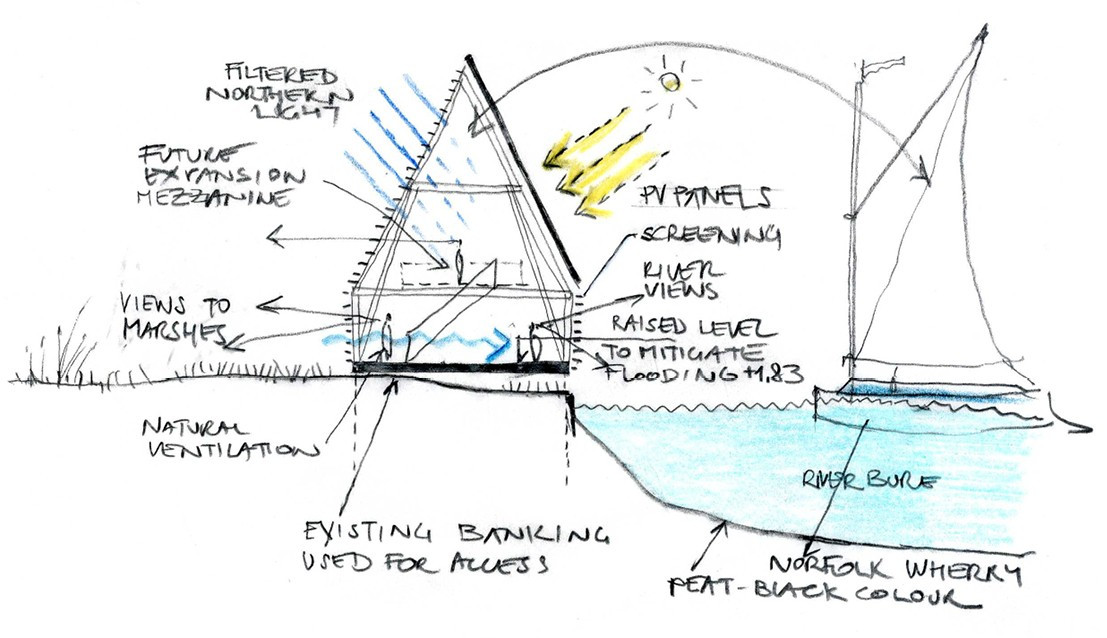 FILTERED
NORTHERN
LIGHT
FUTURE
EXPANSION
MEZZANINE
VIEWS TO
MARSHES
NATURAL
VENTILATION
EXISTING BANKING
USED FOR ACCESS
PV PANELS
SCREENING
RIVER
VIEWS
RAISED LEVEL
TO MITIGATE
FLOODING +1.83
RIVER BURE
NORFOLK WHERRY
PEAT-BLACK COLOUR